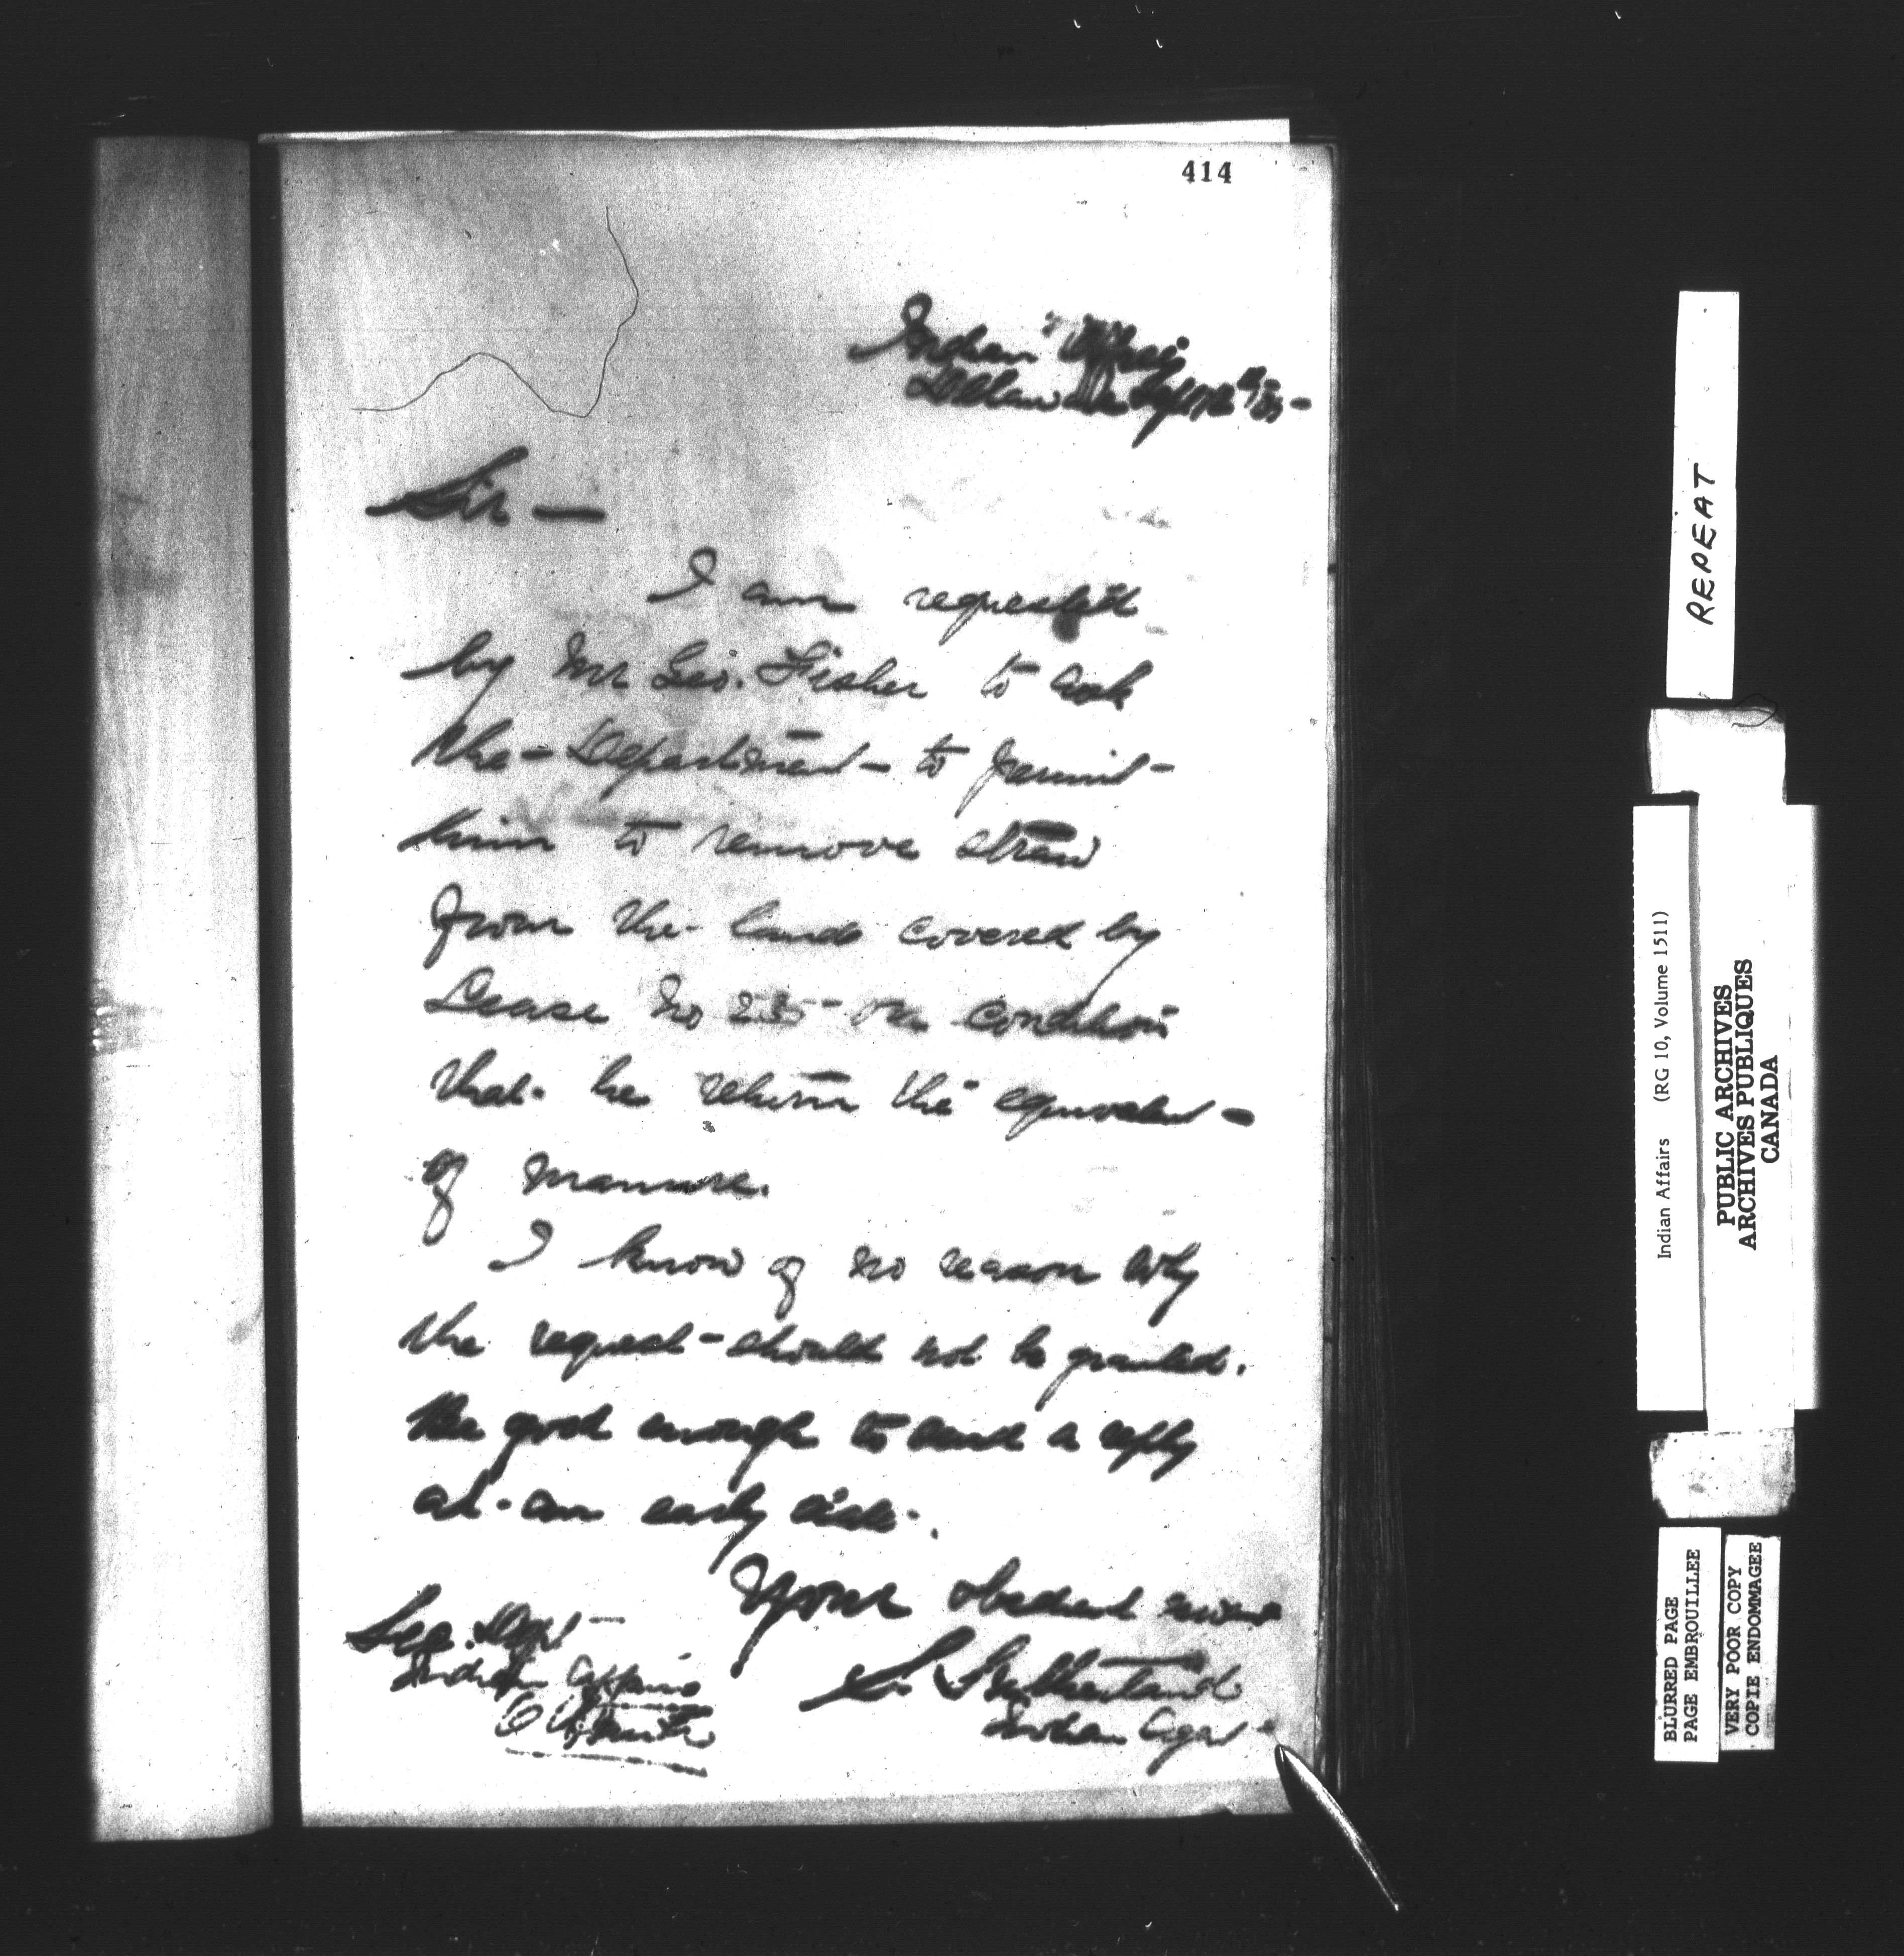 414
Indian Office
Delaware Sept
Sir —
I am requested
by Mr Geo. Fisher to ask
the - Department - to permit -
him to remove straw
from the land covered by
Lease No 235 - on condition
that he return the equivalent -
of manure.
I know of no reason why
the request - should not be granted.
Be good enough to send a reply
at an early date.
Yours obedient servant
S. Sutherland
Indian Agent
Sec. Dept -
Indian Affairs
Ottawa
REPEAT
Indian Affairs (RG 10, Volume 1511)
PUBLIC ARCHIVES
ARCHIVES PUBLIQUES
CANADA
BLURRED PAGE
PAGE EMBROUILLEE
VERY POOR COPY
COPIE ENDOMMAGEE